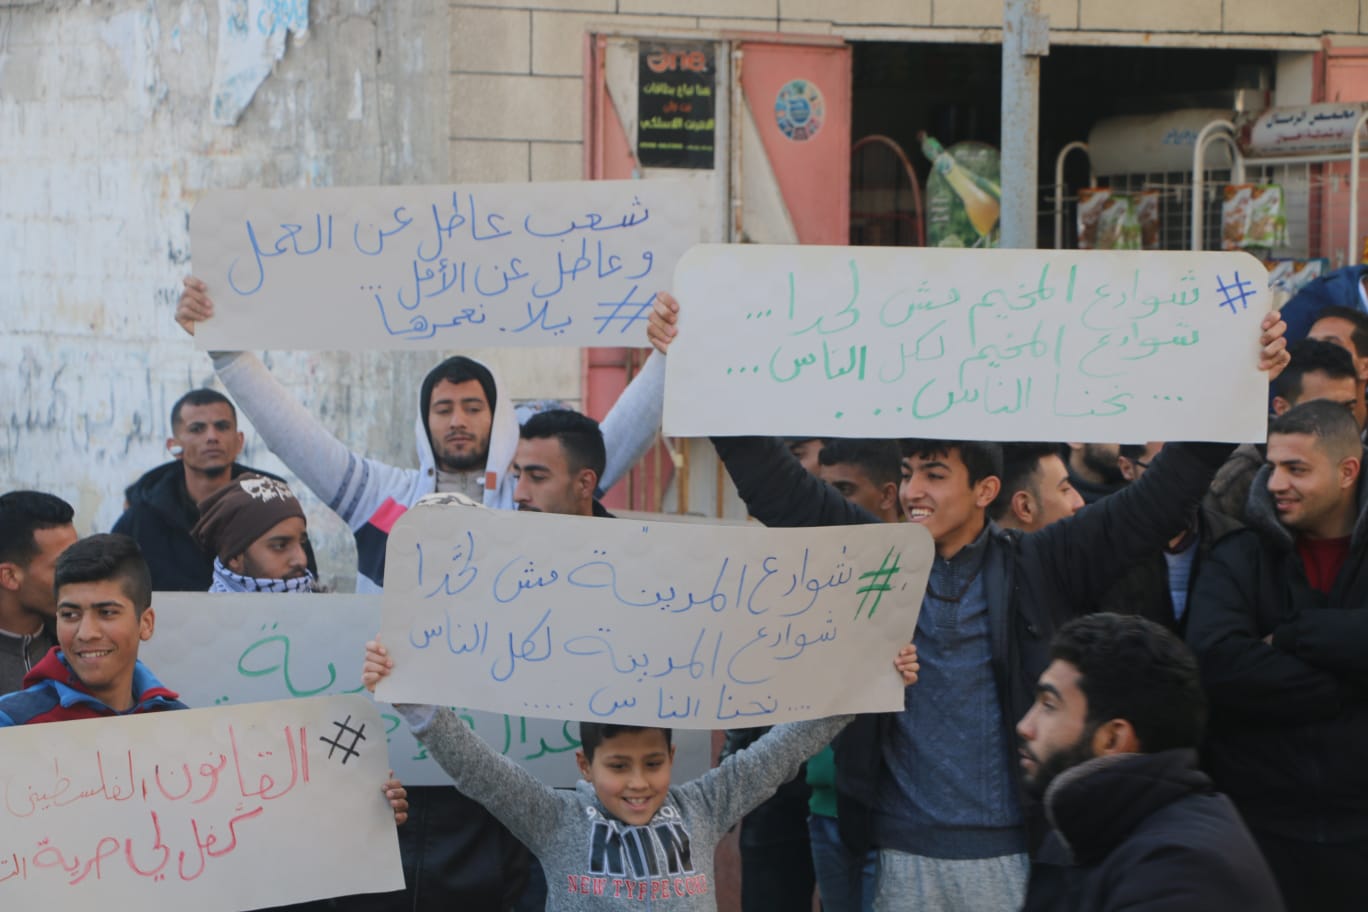 شعب عاطل عن العمل
وعاطل عن الأمل ...
# يلا نعمرها
# شوارع المخيم مش لحدا ...
شوارع المخيم لكل الناس ...
... نحنا الناس ...
# شوارع المدينة مش لحدا
شوارع المدينة لكل الناس
.... نحنا الناس ......
# القانون الفلسطيني
كفل لي حرية
one
هنا تباع بطاقات
الانترنت اللاسلكي
NEW TYFPE CORE